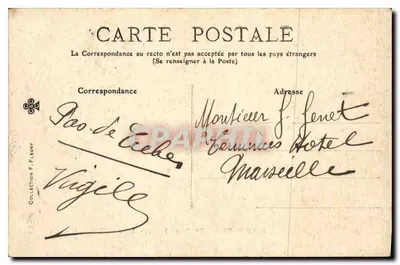 CARTE POSTALE
La Correspondance au recto n'est pas acceptée par tous les pays étrangers
(Se renseigner à la Poste)
Correspondance
Adresse
Pas de
Virgile
Monsieur J. Genet
Terminus Hotel
Marseille
COLLECTION F. FLEURY